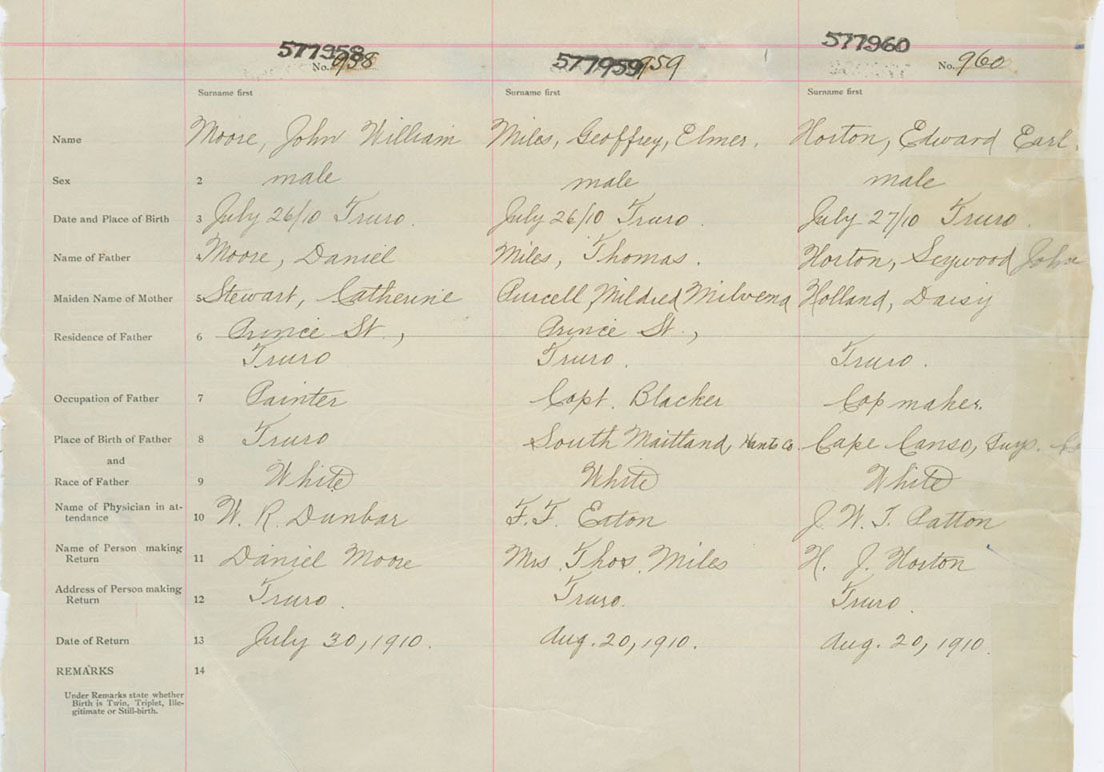 577958 577959 577960
No. 958 959 No. 960
Surname first Surname first Surname first
Name Moore, John William Miles, Geoffrey, Elmer. Horton, Edward Earl.
Sex 2 male male male
Date and Place of Birth 3 July 26/10 Truro. July 26/10 Truro. July 27/10 Truro.
Name of Father 4 Moore, Daniel Miles, Thomas. Horton, John
Maiden Name of Mother 5 Stewart, Catherine Purcell, Mildred Milvena Holland, Daisy
Residence of Father 6 Prince St., Prince St.,
Truro Truro. Truro.
Occupation of Father 7 Painter Capt. Blacker Cap maker.
Place of Birth of Father 8 Truro South Maitland, Hants Co. Cape Canso, Guys.
and
Race of Father 9 White White White
Name of Physician in at-
tendance 10 W. R. Dunbar F. F. Eaton J. W. T. Patton
Name of Person making
Return 11 Daniel Moore Mrs. Thos. Miles H. J. Horton
Address of Person making
Return 12 Truro. Truro. Truro.
Date of Return 13 July 30, 1910. Aug. 20, 1910. Aug. 20, 1910.
REMARKS 14
Under Remarks state whether
Birth is Twin, Triplet, Ille-
gitimate or Still-birth.